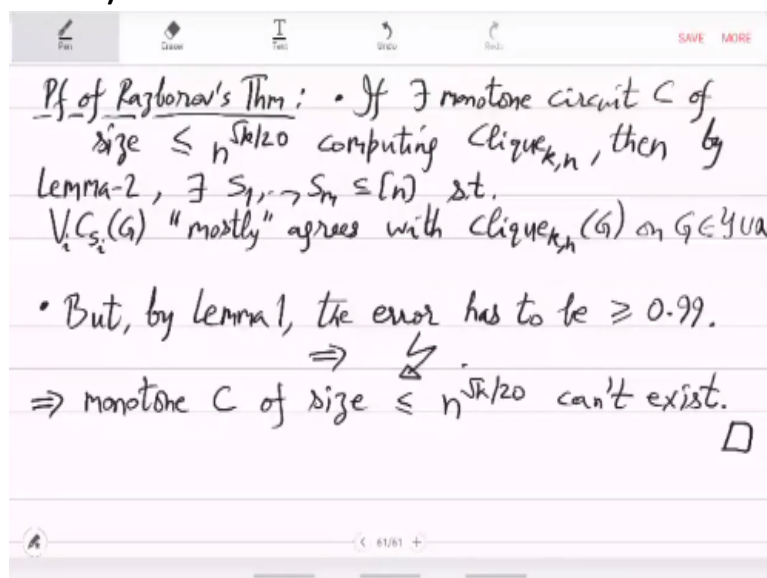 Pen Eraser Text Undo Redo SAVE MORE
Pf of Razborov's Thm: • If ∃ monotone circuit C of
size ≤ n^{√k/20} computing Clique_{k,n}, then by
Lemma-2, ∃ S_1,..,S_m ⊆ [n] s.t.
V_i C_{S_i}(G) "mostly" agrees with Clique_{k,n}(G) on G∈Y∪
• But, by Lemma 1, the error has to be ≥ 0.99.
⇒ ↯.
⇒ monotone C of size ≤ n^{√k/20} can't exist.
□
< 61/61 +